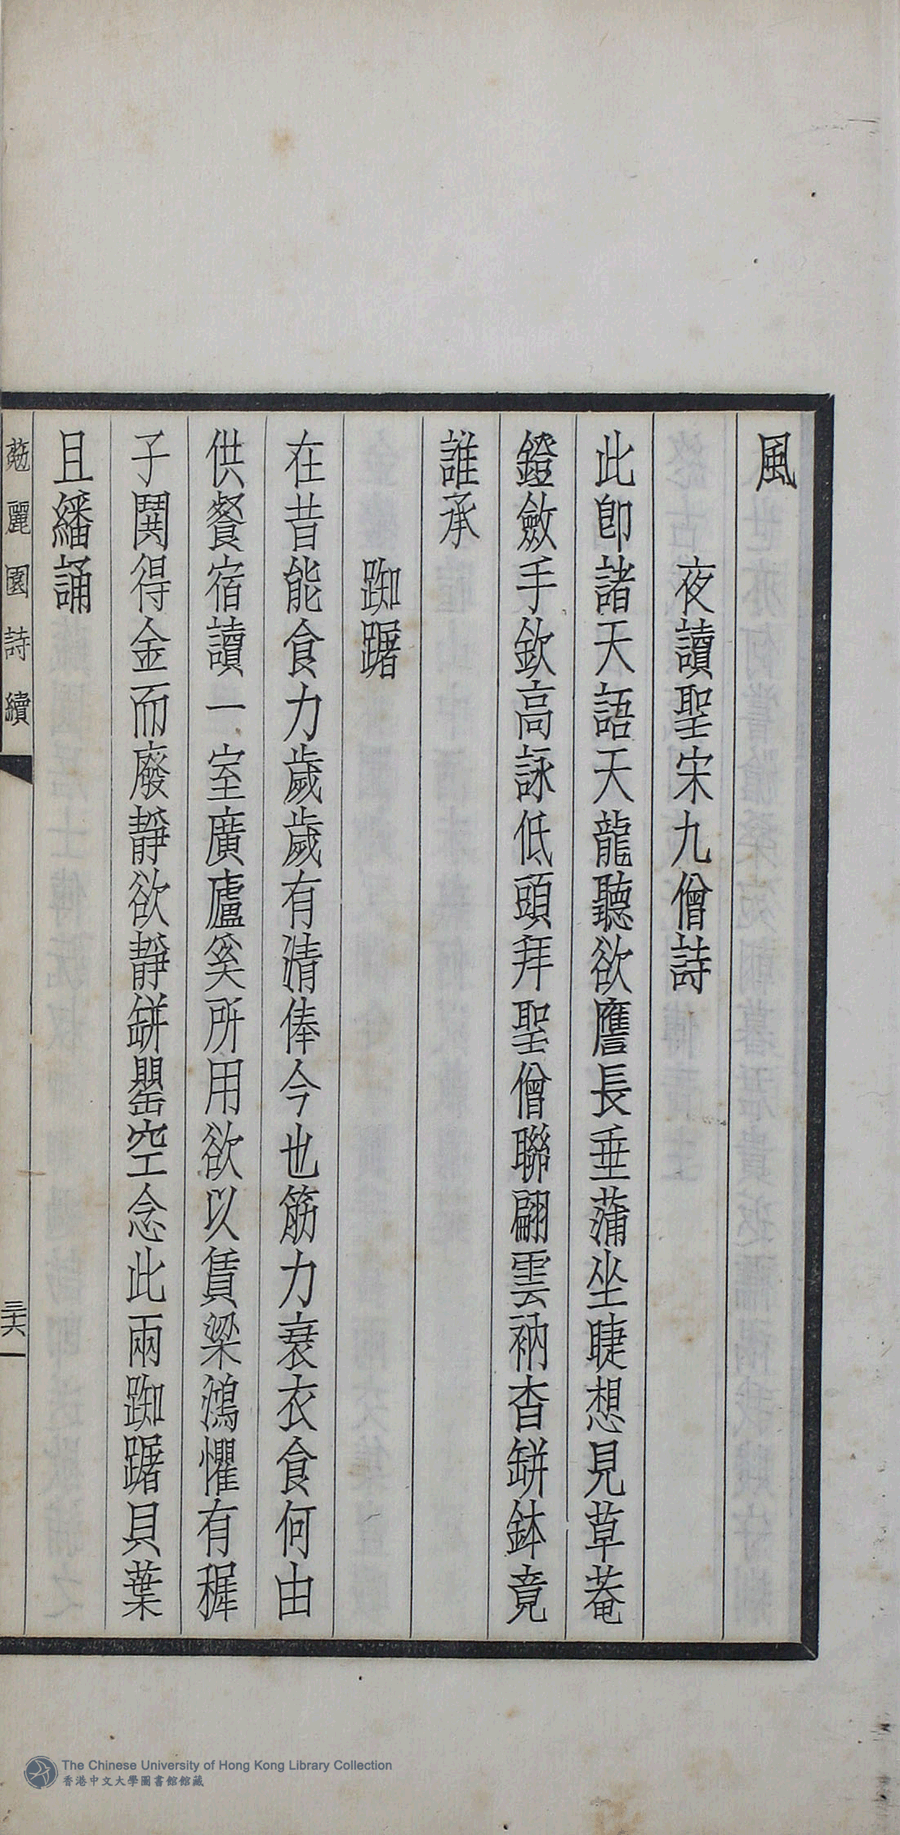 風
夜讀聖宋九僧詩
此卽諸天語天龍聽欲譍長垂蒲坐睫想見草菴
鐙斂手欽高詠低頭拜聖僧聯翩雲衲杳缾鉢竟
誰承
踟躇
在昔能食力歲歲有清俸今也筋力衰衣食何由
供餐宿讀一室廣廬奚所用欲以賃梁鴻懼有稺
子鬨得金而廢靜欲靜缾罌空念此兩踟躇貝葉
且繙誦
麗園詩續
三十六
The Chinese University of Hong Kong Library Collection
香港中文大學圖書館館藏